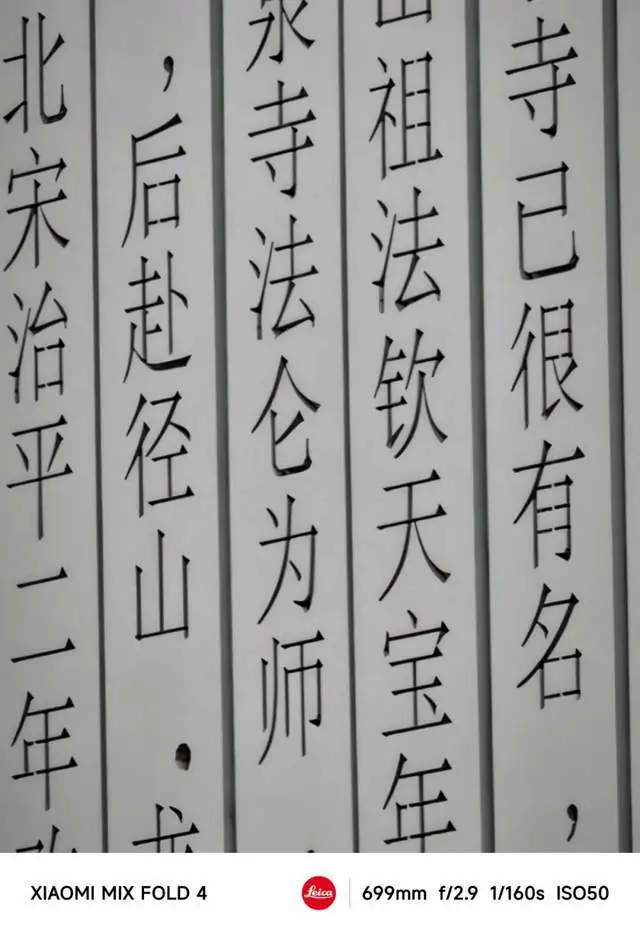 寺已很有名，
山祖法钦天宝年
泉寺法仑为师
，后赴径山.
北宋治平二年
XIAOMI MIX FOLD 4
Leica
699mm f/2.9 1/160s ISO50